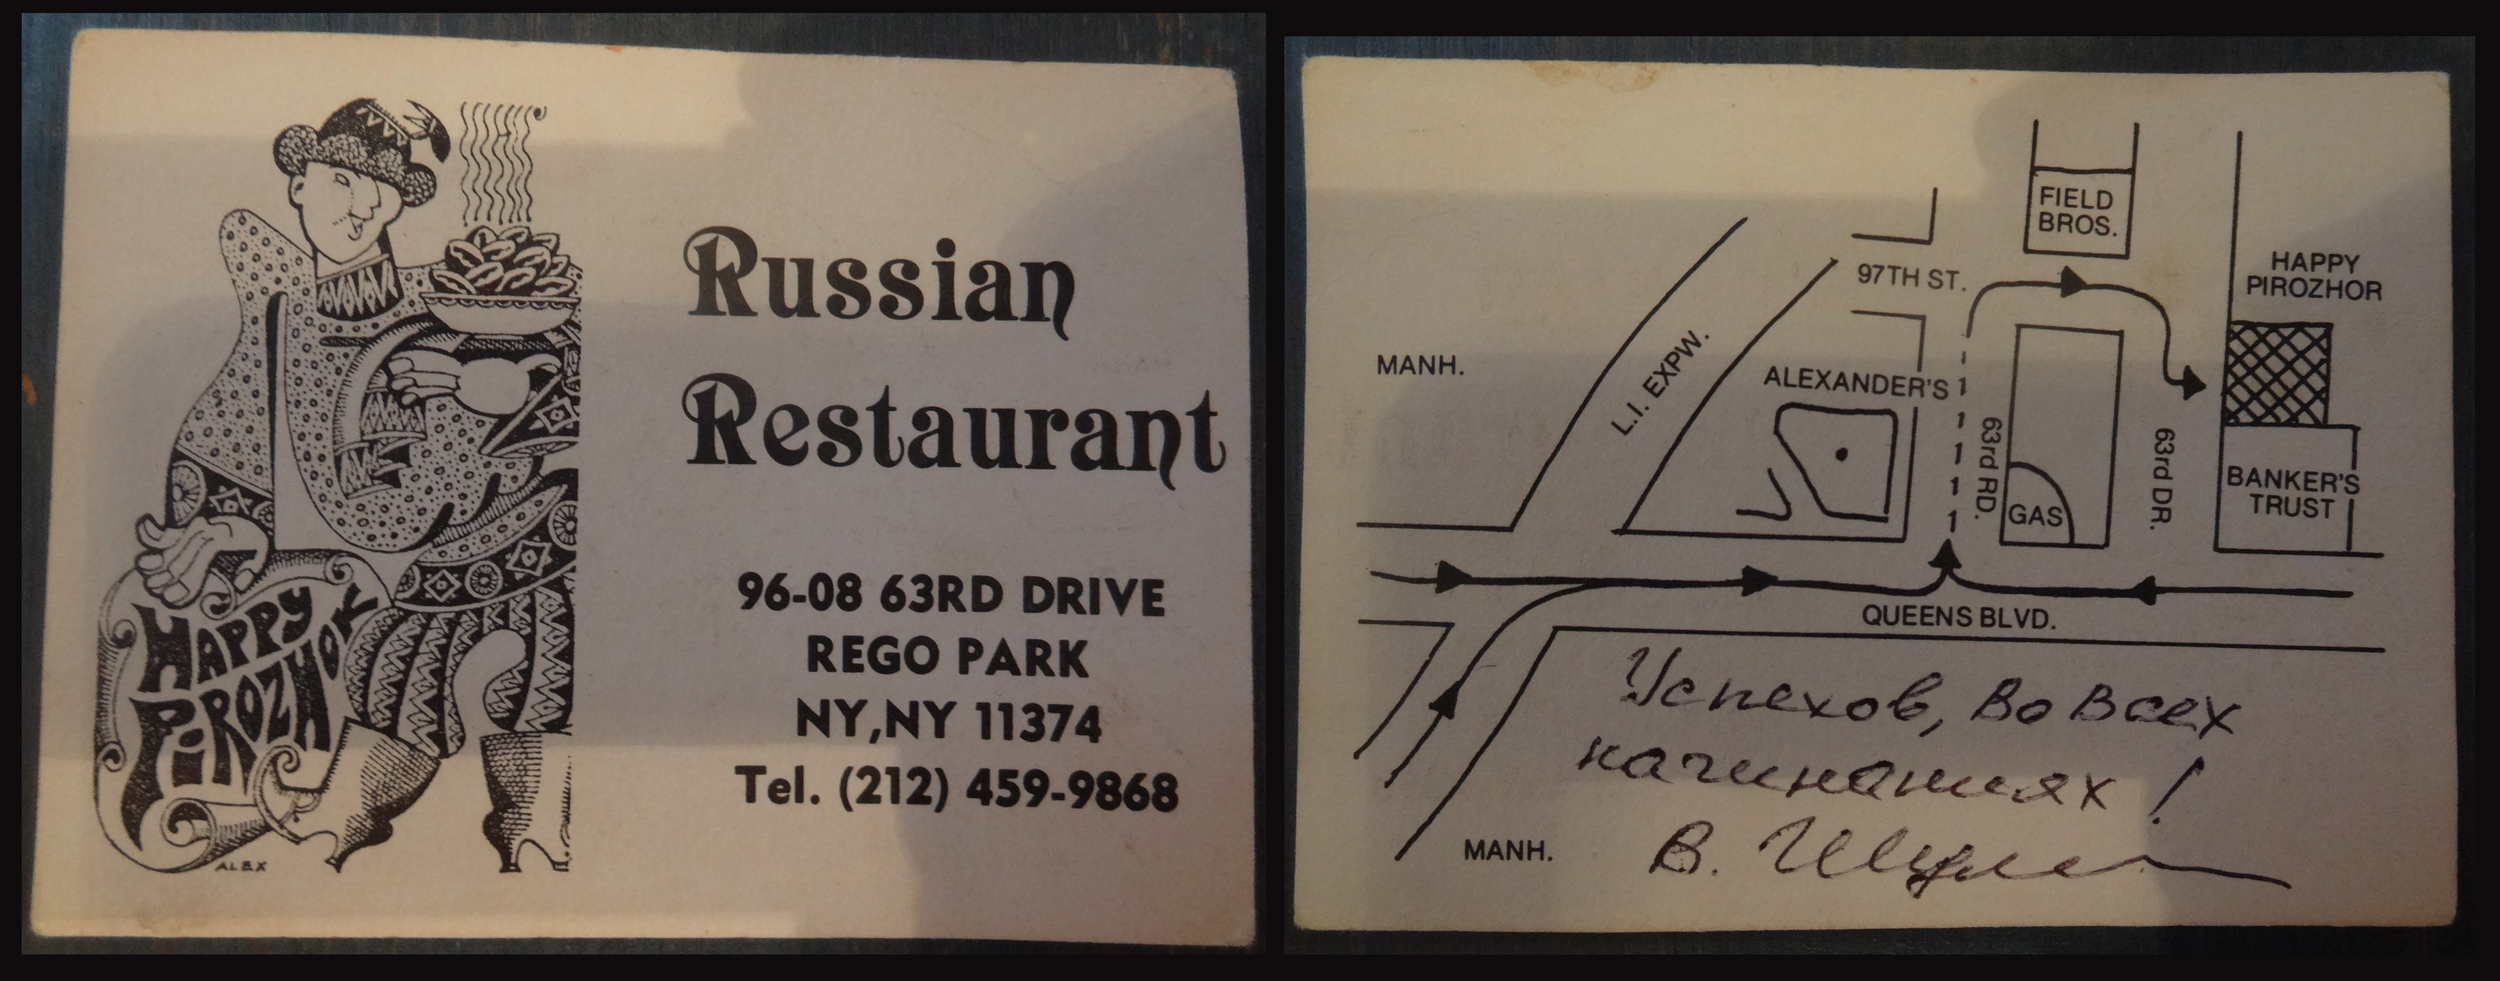 HAPPY
PIROZHOK
ALEX
Russian
Restaurant
96-08 63RD DRIVE
REGO PARK
NY,NY 11374
Tel. (212) 459-9868
FIELD
BROS.
HAPPY
PIROZHOR
97TH ST.
MANH.
L.I. EXPW.
ALEXANDER'S
63rd RD.
63rd DR.
GAS
BANKER'S
TRUST
QUEENS BLVD.
MANH.
Успехов, во всех
начинаниях!
В.